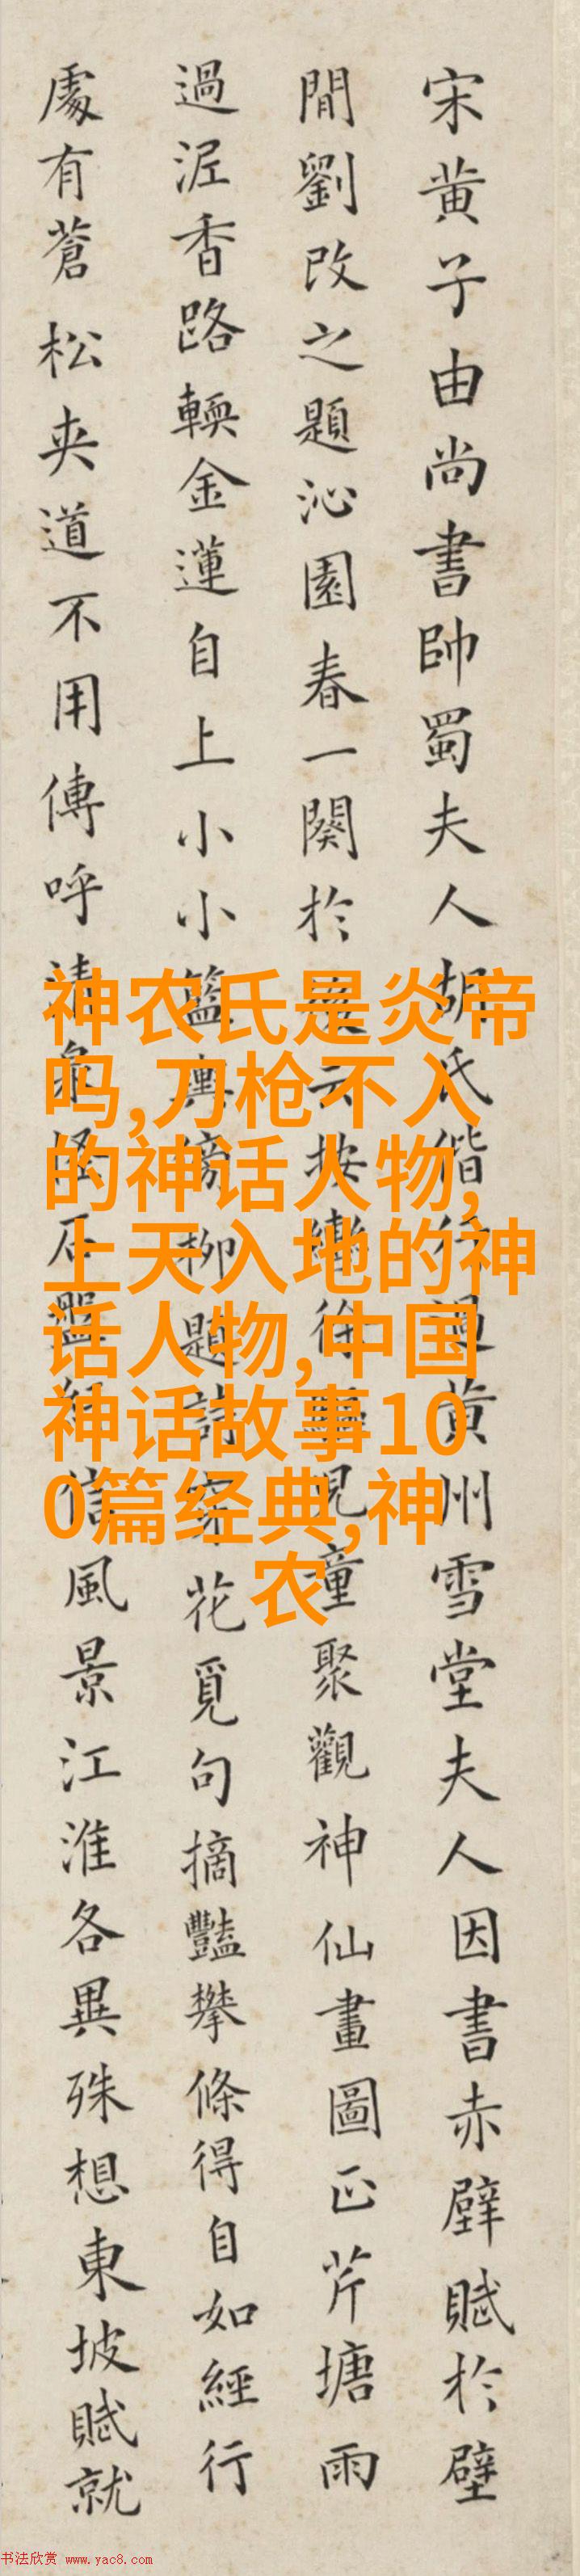 宋黄子由尚書帥蜀夫人胡氏偕行過黄州雪堂夫人因書赤壁賦於壁
間劉改之題沁園春一闋於後云按轡徐驅兒童聚觀神仙畫圖正芹塘雨
過泥香路輭金蓮自上小小籃輿傍柳題詩穿花覓句摘豔攀條得自如經行
處有蒼松夾道不用傳呼清泉怪石盤紆信風景江淮各異殊想東坡賦就
神农氏是炎帝
吗,刀枪不入
的神话人物,
上天入地的神
话人物,中国
神话故事10
0篇经典,神
农
书法欣赏 www.yac8.com